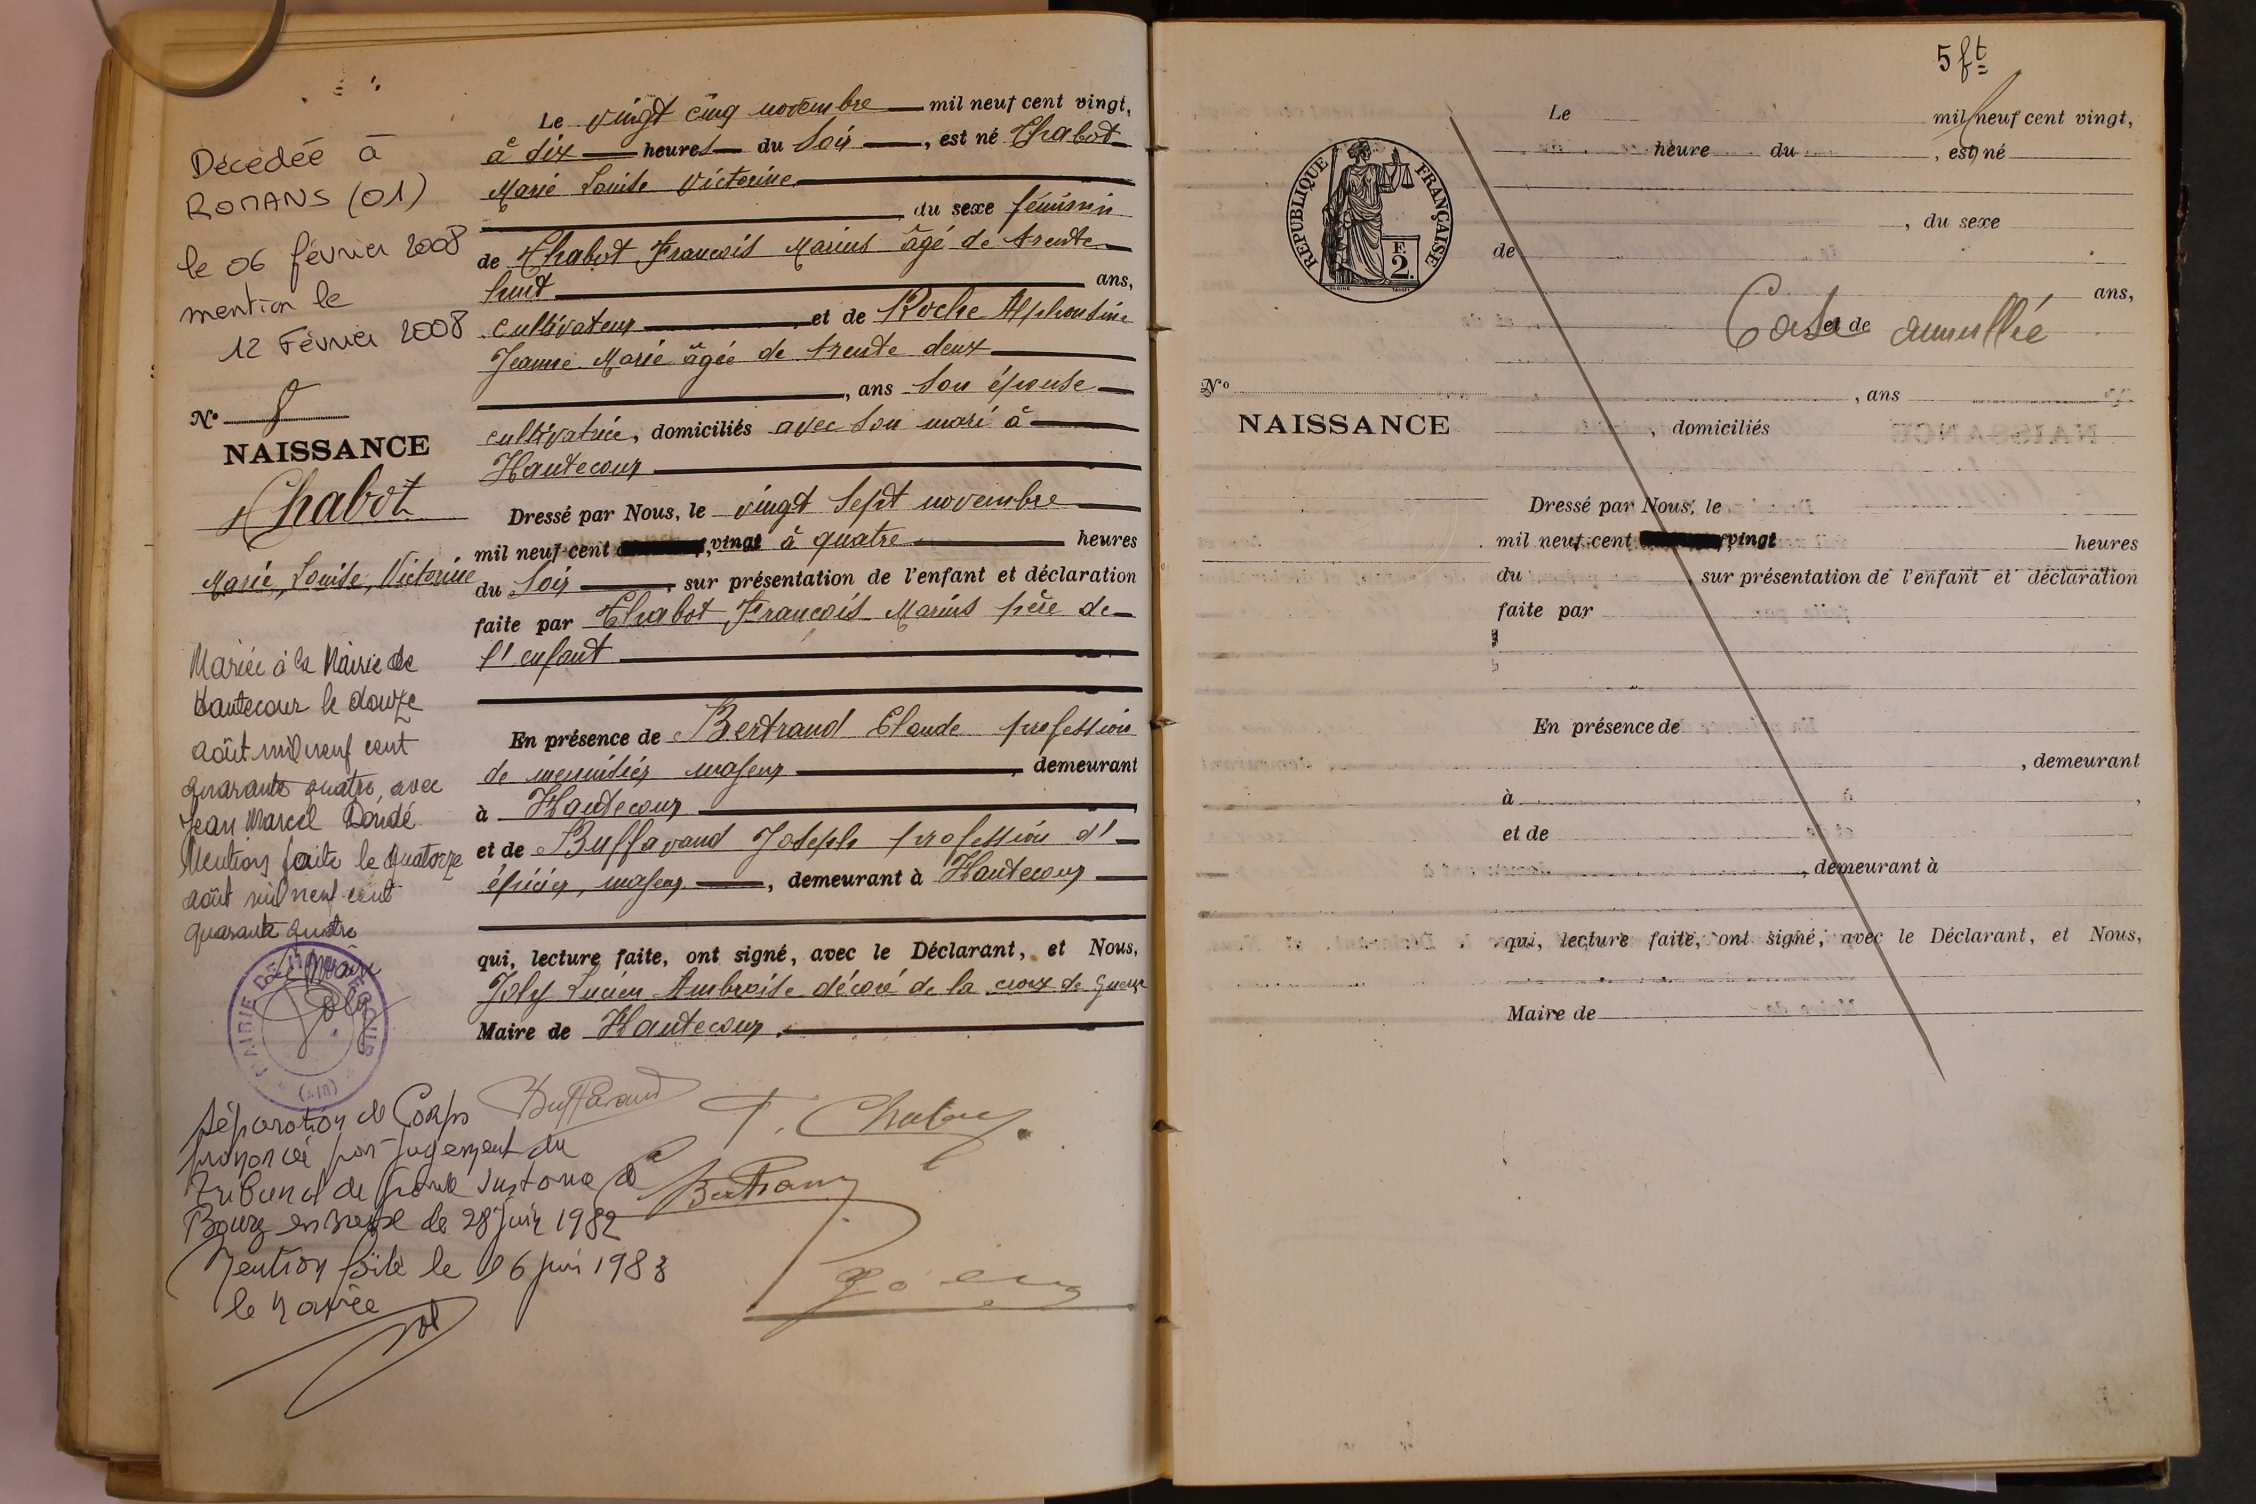 Décédée à
ROMANS (01)
le 06 février 2008
mention le
12 Février 2008
N° 8
NAISSANCE
Chabot
Marie, Louise, Victorine
Mariée à la Mairie de
Hautecour le douze
août mil neuf cent
quarante quatre, avec
Jean Marcel Dondé
Mention faite le quatorze
août mil neuf cent
quarante quatre
Le Maire
Joly
MAIRIE DE HAUTECOUR
(AIN)
Séparation de Corps
prononcé par jugement du
Tribunal de Grande Instance de
Bourg en Bresse le 28 Juin 1982
Mention faite le 16 juin 1983
le Maire
Le vingt cinq novembre mil neuf cent vingt,
à dix heures du soir, est né Chabot
Marie Louise Victorine
, du sexe féminin
de Chabot François Marius âgé de trente
huit ans,
cultivateur et de Roche Alphonsine
Jeanne Marie âgée de trente deux
, ans son épouse
cultivatrice, domiciliés avec son mari à
Hautecour
Dressé par Nous, le vingt sept novembre
mil neuf cent vingt à quatre heures
du soir, sur présentation de l'enfant et déclaration
faite par Chabot François Marius père de
l'enfant
En présence de Bertrand Claude profession
de menuisier majeur, demeurant
à Hautecour,
et de Buffavand Joseph profession d'
épicier, majeur, demeurant à Hautecour
qui, lecture faite, ont signé, avec le Déclarant, et Nous,
Joly Lucien Ambroise décoré de la croix de Guerre
Maire de Hautecour.
Buffavand
F. Chabot
Bertrand
5 ft
RÉPUBLIQUE FRANÇAISE
F.
2.
Le mil neuf cent vingt,
heure du , est né
, du sexe
de
ans,
et de
Case annullée
N°
, ans
NAISSANCE
, domiciliés
Dressé par Nous, le
mil neuf cent vingt heures
du , sur présentation de l'enfant et déclaration
faite par
En présence de
, demeurant
à ,
et de
, demeurant à
qui, lecture faite, ont signé, avec le Déclarant, et Nous,
Maire de